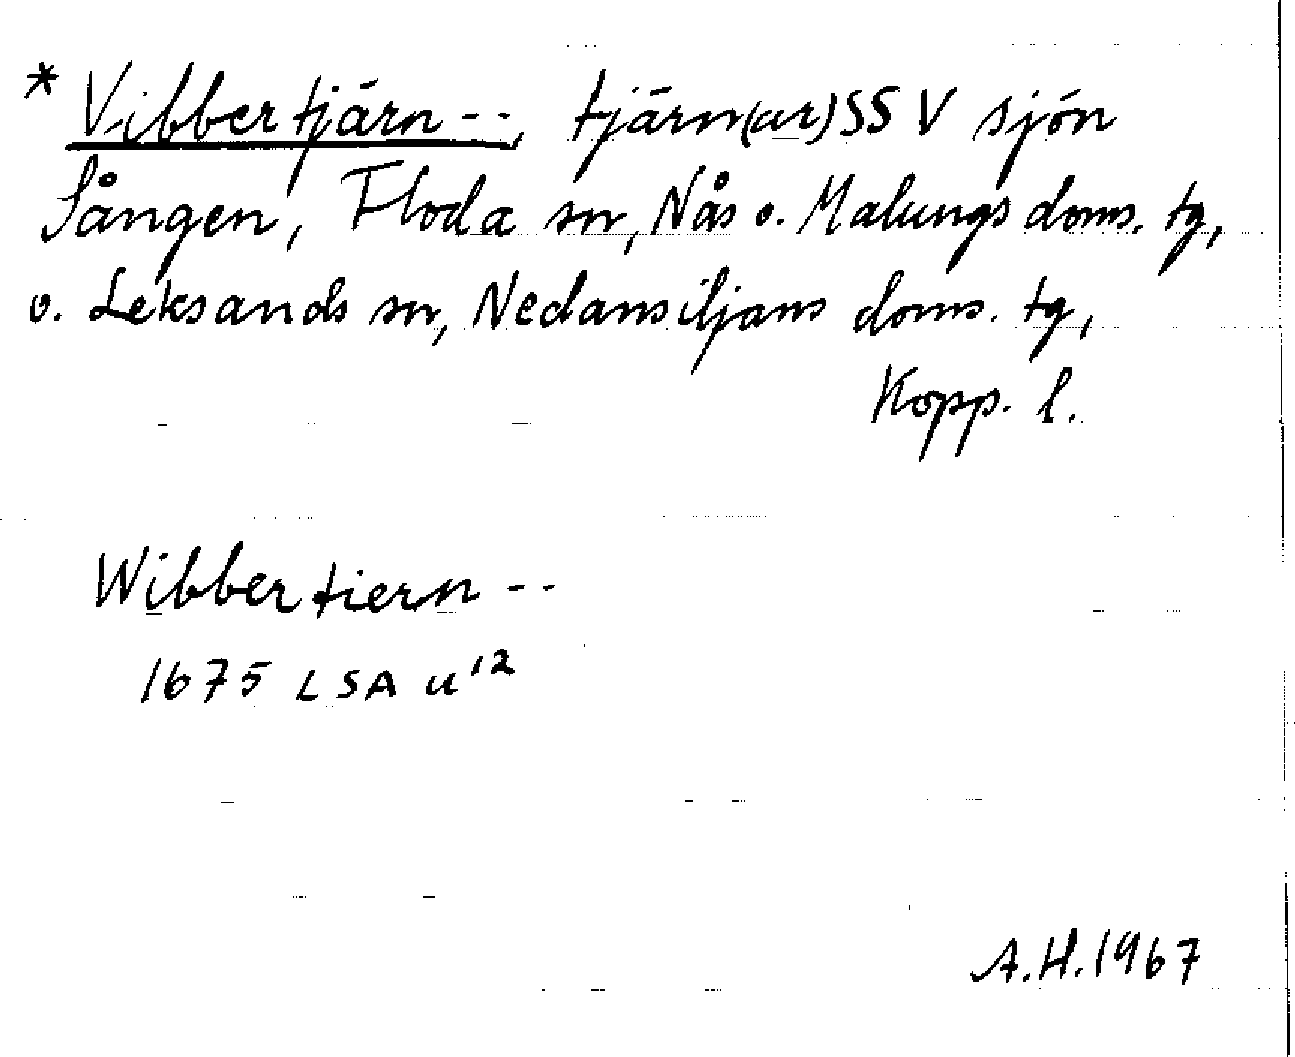 * Vibbertjärn--, tjärn(ar) SSV sjön
Sången, Floda sn, Nås o. Malungs doms. tg,
o. Leksands sn, Nedansiljans doms. tg,
Kopp. l.
Wibbertiern--
1675 LSA u¹²
A.H. 1967